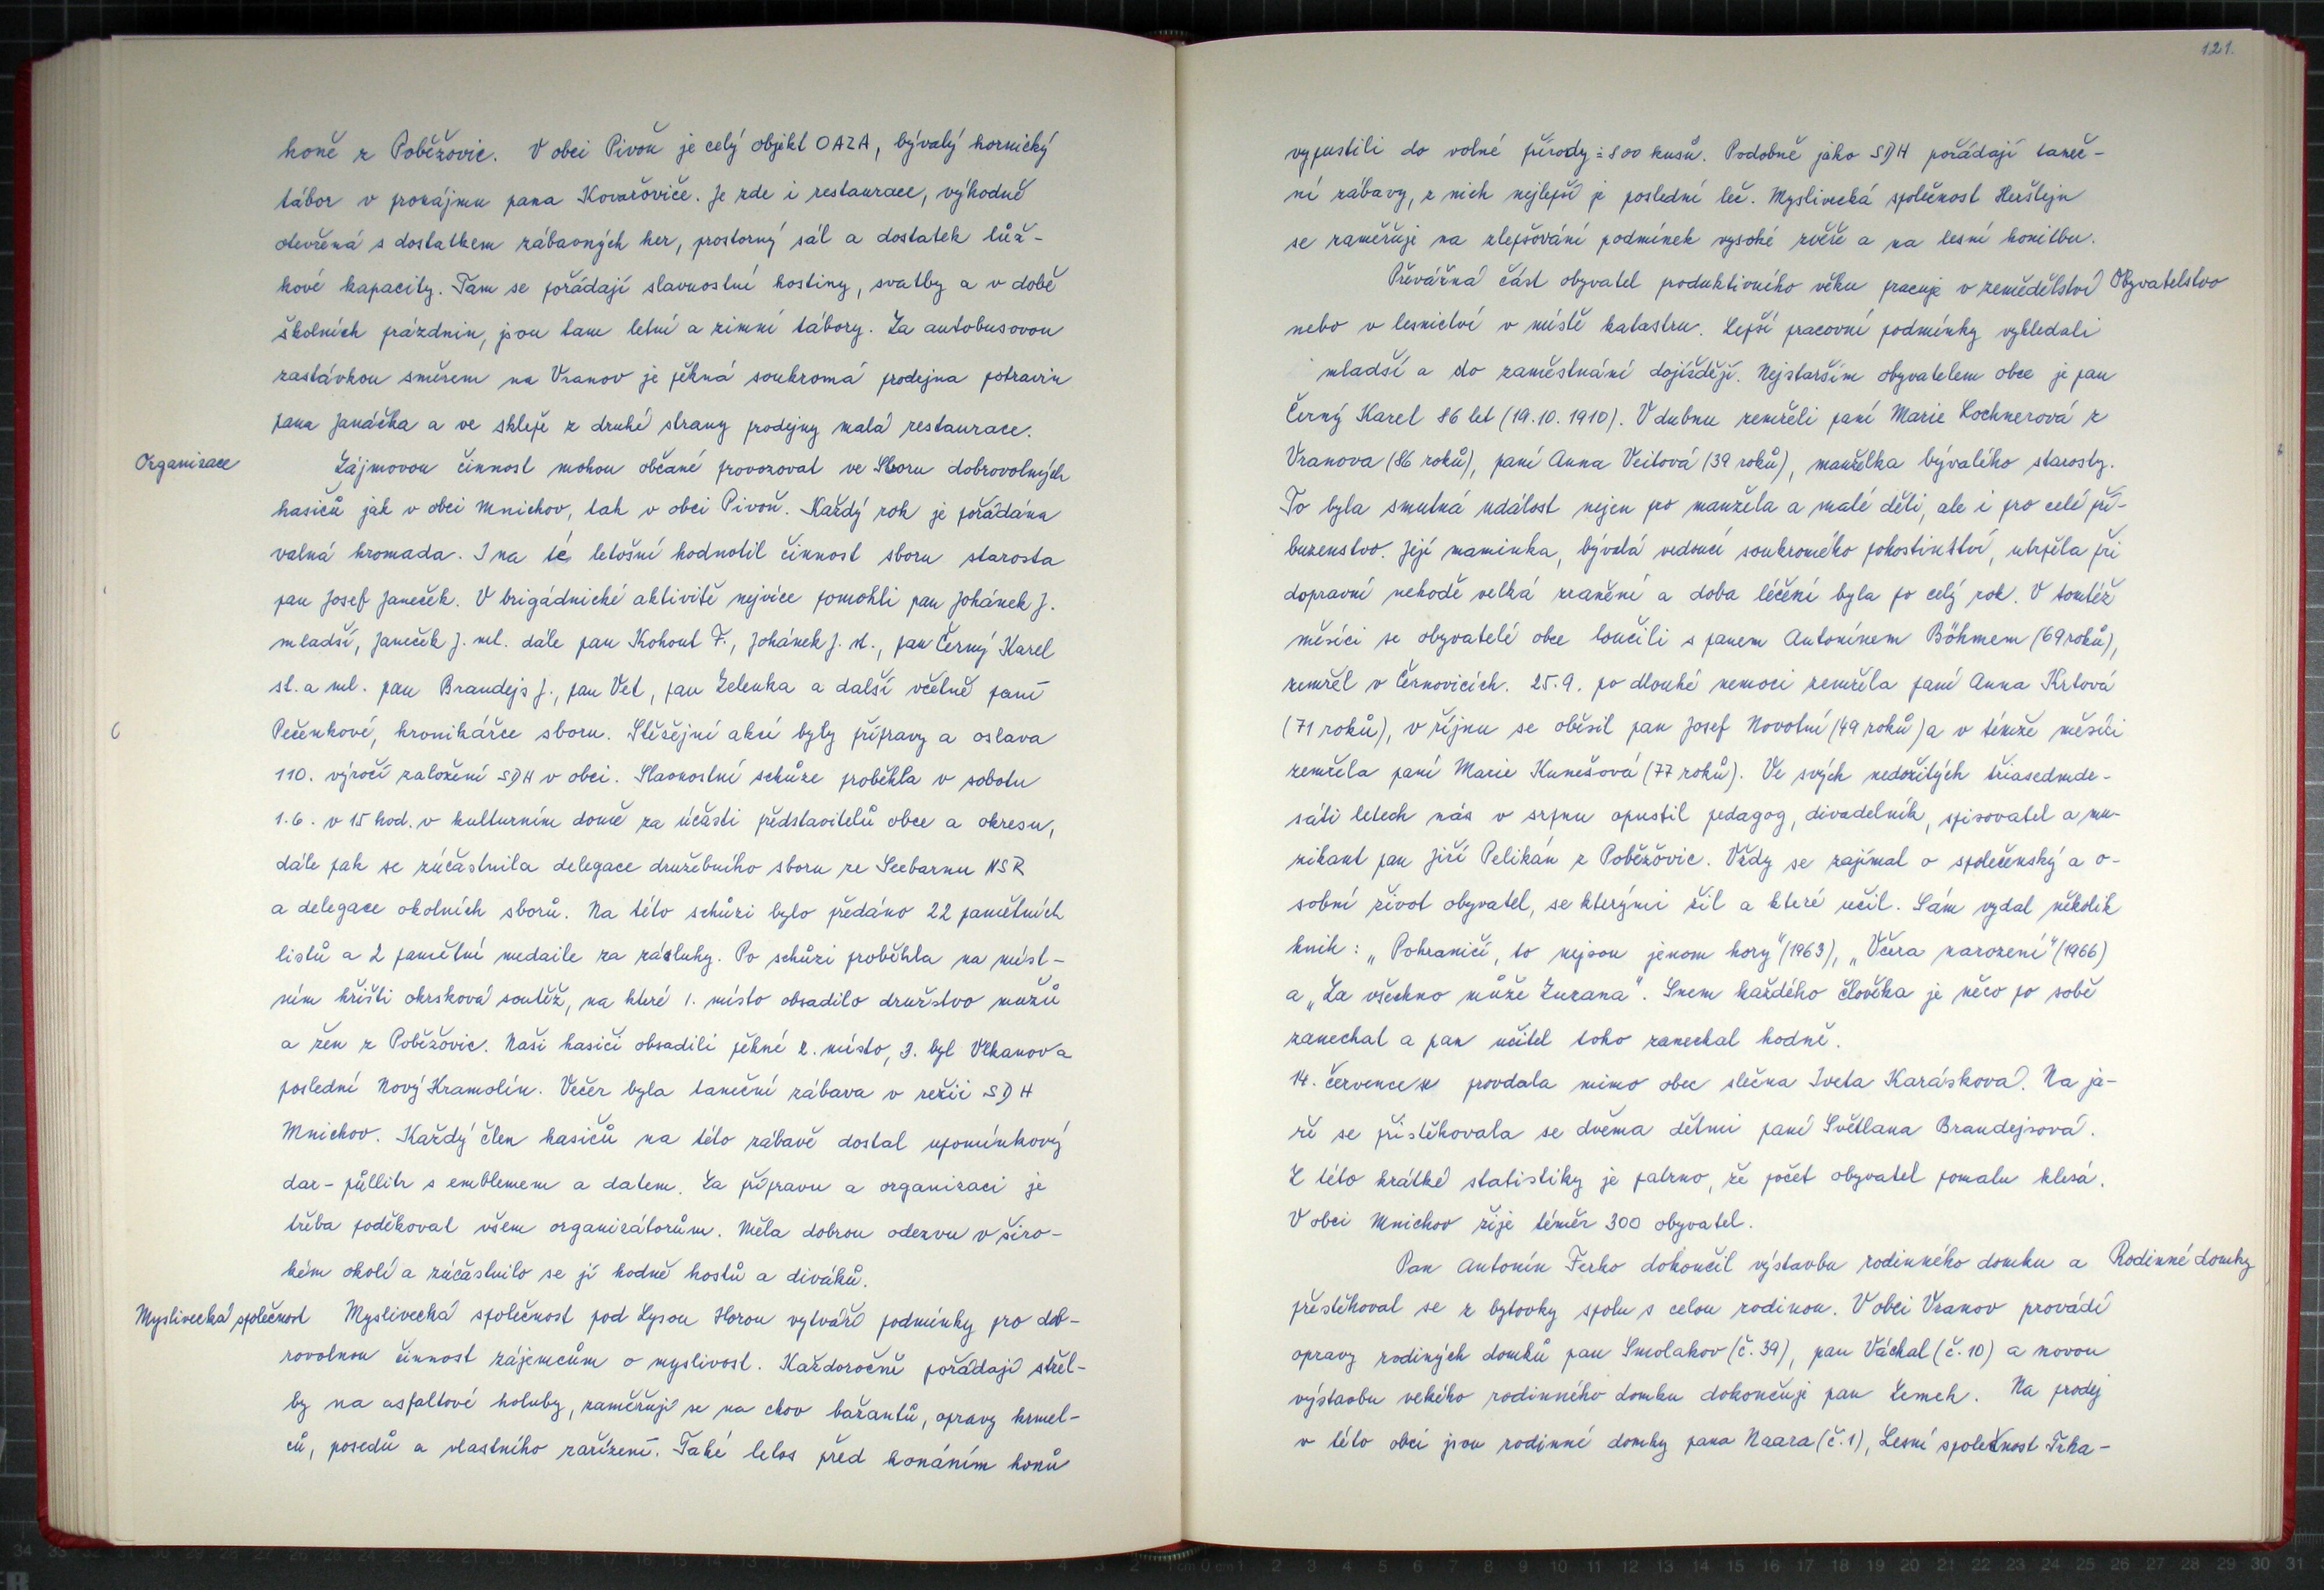 honě z Poběžovic. V obci Pivoň je celý objekt OAZA, bývalý hornický
tábor v pronájmu pana Kovařoviče. Je zde i restaurace, výhodně
otevřená s dostatkem zábavných her, prostorný sál a dostatek lůž-
kové kapacity. Tam se pořádají slavnostní hostiny, svatby a v době
školních prázdnin, jsou tam letní a zimní tábory. Za autobusovou
zastávkou směrem na Vranov je pěkná soukromá prodejna potravin
pana Janáčka a ve sklepě z druhé strany prodejny malá restaurace.
Organizace
Zájmovou činnost mohou občané provozovat ve Sboru dobrovolných
hasičů jak v obci Mnichov, tak v obci Pivoň. Každý rok je pořádána
valná hromada. I na té letošní hodnotil činnost sboru starosta
pan Josef Janeček. V brigádnické aktivitě nejvíce pomohli pan Johánek J.
mladší, Janeček J. ml. dále pan Kohout F., Johánek J. st., pan Černý Karel
st. a ml. pan Brandejs J., pan Vet, pan Zelenka a další včetně paní
Pečenkové, kronikářce sboru. Stěžejní akcí byly přípravy a oslava
110. výročí založení SDH v obci. Slavnostní schůze proběhla v sobotu
1.6. v 15 hod. v kulturním domě za účasti představitelů obce a okresu,
dále pak se zúčastnila delegace družebního sboru ze Seebarnu NSR
a delegace okolních sborů. Na této schůzi bylo předáno 22 pamětních
listů a 2 pamětní medaile za zásluhy. Po schůzi proběhla na míst-
ním hřišti okrsková soutěž, na které 1. místo obsadilo družstvo mužů
a žen z Poběžovic. Naši hasiči obsadili pěkné 2. místo, 3. byl Vlkanov a
poslední Nový Kramolín. Večer byla taneční zábava v režii SDH
Mnichov. Každý člen hasičů na této zábavě dostal upomínkový
dar - půllitr s emblemem a datem. Za přípravu a organizaci je
třeba poděkovat všem organizátorům. Měla dobrou odezvu v širo-
kém okolí a zúčastnilo se jí hodně hostů a diváků.
Myslivecká společnost Myslivecká společnost pod Lysou Horou vytváří podmínky pro dob-
rovolnou činnost zájemcům o myslivost. Každoročně pořádají střel-
by na asfaltové holuby, zaměřují se na chov bažantů, opravy krmel-
ců, posedů a vlastního zařízení. Také letos před konáním honů
121.
vypustili do volné přírody ≐ 800 kusů. Podobně jako SDH pořádají taneč-
ní zábavy, z nich nejlepší je poslední leč. Myslivecká společnost Herštejn
se zaměřuje na zlepšování podmínek vysoké zvěře a na lesní honitbu.
Převážná část obyvatel produktivního věku pracuje v zemědělství Obyvatelstvo
nebo v lesnictví v místě katastru. Lepší pracovní podmínky vyhledali
mladší a do zaměstnání dojíždějí. Nejstarším obyvatelem obce je pan
Černý Karel 86 let (19.10.1910). V dubnu zemřeli paní Marie Lochnerová z
Vranova (86 roků), paní Anna Veitová (39 roků), manželka bývalého starosty.
To byla smutná událost nejen po manžela a malé děti, ale i pro celé pří-
buzenstvo. Její maminka, bývalá vedoucí soukromého pohostinství, utrpěla při
dopravní nehodě velká zranění a doba léčení byla po celý rok. V tomtéž
měsíci se obyvatelé obce loučili s panem Antonínem Böhmem (69 roků),
zemřel v Černovicích. 25.9. po dlouhé nemoci zemřela paní Anna Krtová
(71 roků), v říjnu se oběsil pan Josef Novotní (49 roků) a v témže měsíci
zemřela paní Marie Kunešová (77 roků). Ve svých nedožitých třiasedmde-
sáti letech nás v srpnu opustil pedagog, divadelník, spisovatel a mu-
zikant pan Jiří Pelikán z Poběžovic. Vždy se zajímal o společenský a o-
sobní život obyvatel, se kterými žil a které učil. Sám vydal několik
knih: „Pohraničí, to nejsou jenom hory“ (1963), „Včera narození“ (1966)
a „Za všechno může Zuzana“. Snem každého člověka je něco po sobě
zanechat a pan učitel toho zanechal hodně.
14. července se provdala mimo obec slečna Iveta Karásková. Na ja-
ře se přistěhovala se dvěma dětmi paní Světlana Brandejsová.
Z této krátké statistiky je patrno, že počet obyvatel pomalu klesá.
V obci Mnichov žije téměř 300 obyvatel.
Pan Antonín Ferko dokončil výstavbu rodinného domku a Rodinné domky
přestěhoval se z bytovky spolu s celou rodinou. V obci Vranov provádí
opravy rodiných domků pan Smolakov (č. 39), pan Váchal (č. 10) a novou
výstavbu velkého rodinného domku dokončuje pan Zemek. Na prodej
v této obci jsou rodinné domky pana Naara (č. 1), Lesní společnost Trha-